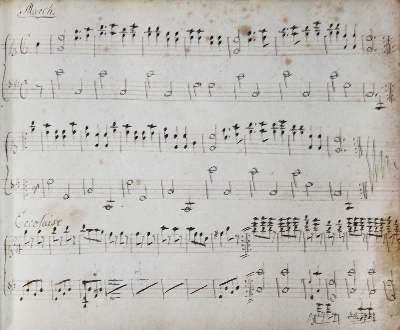 March.
Eccosaise